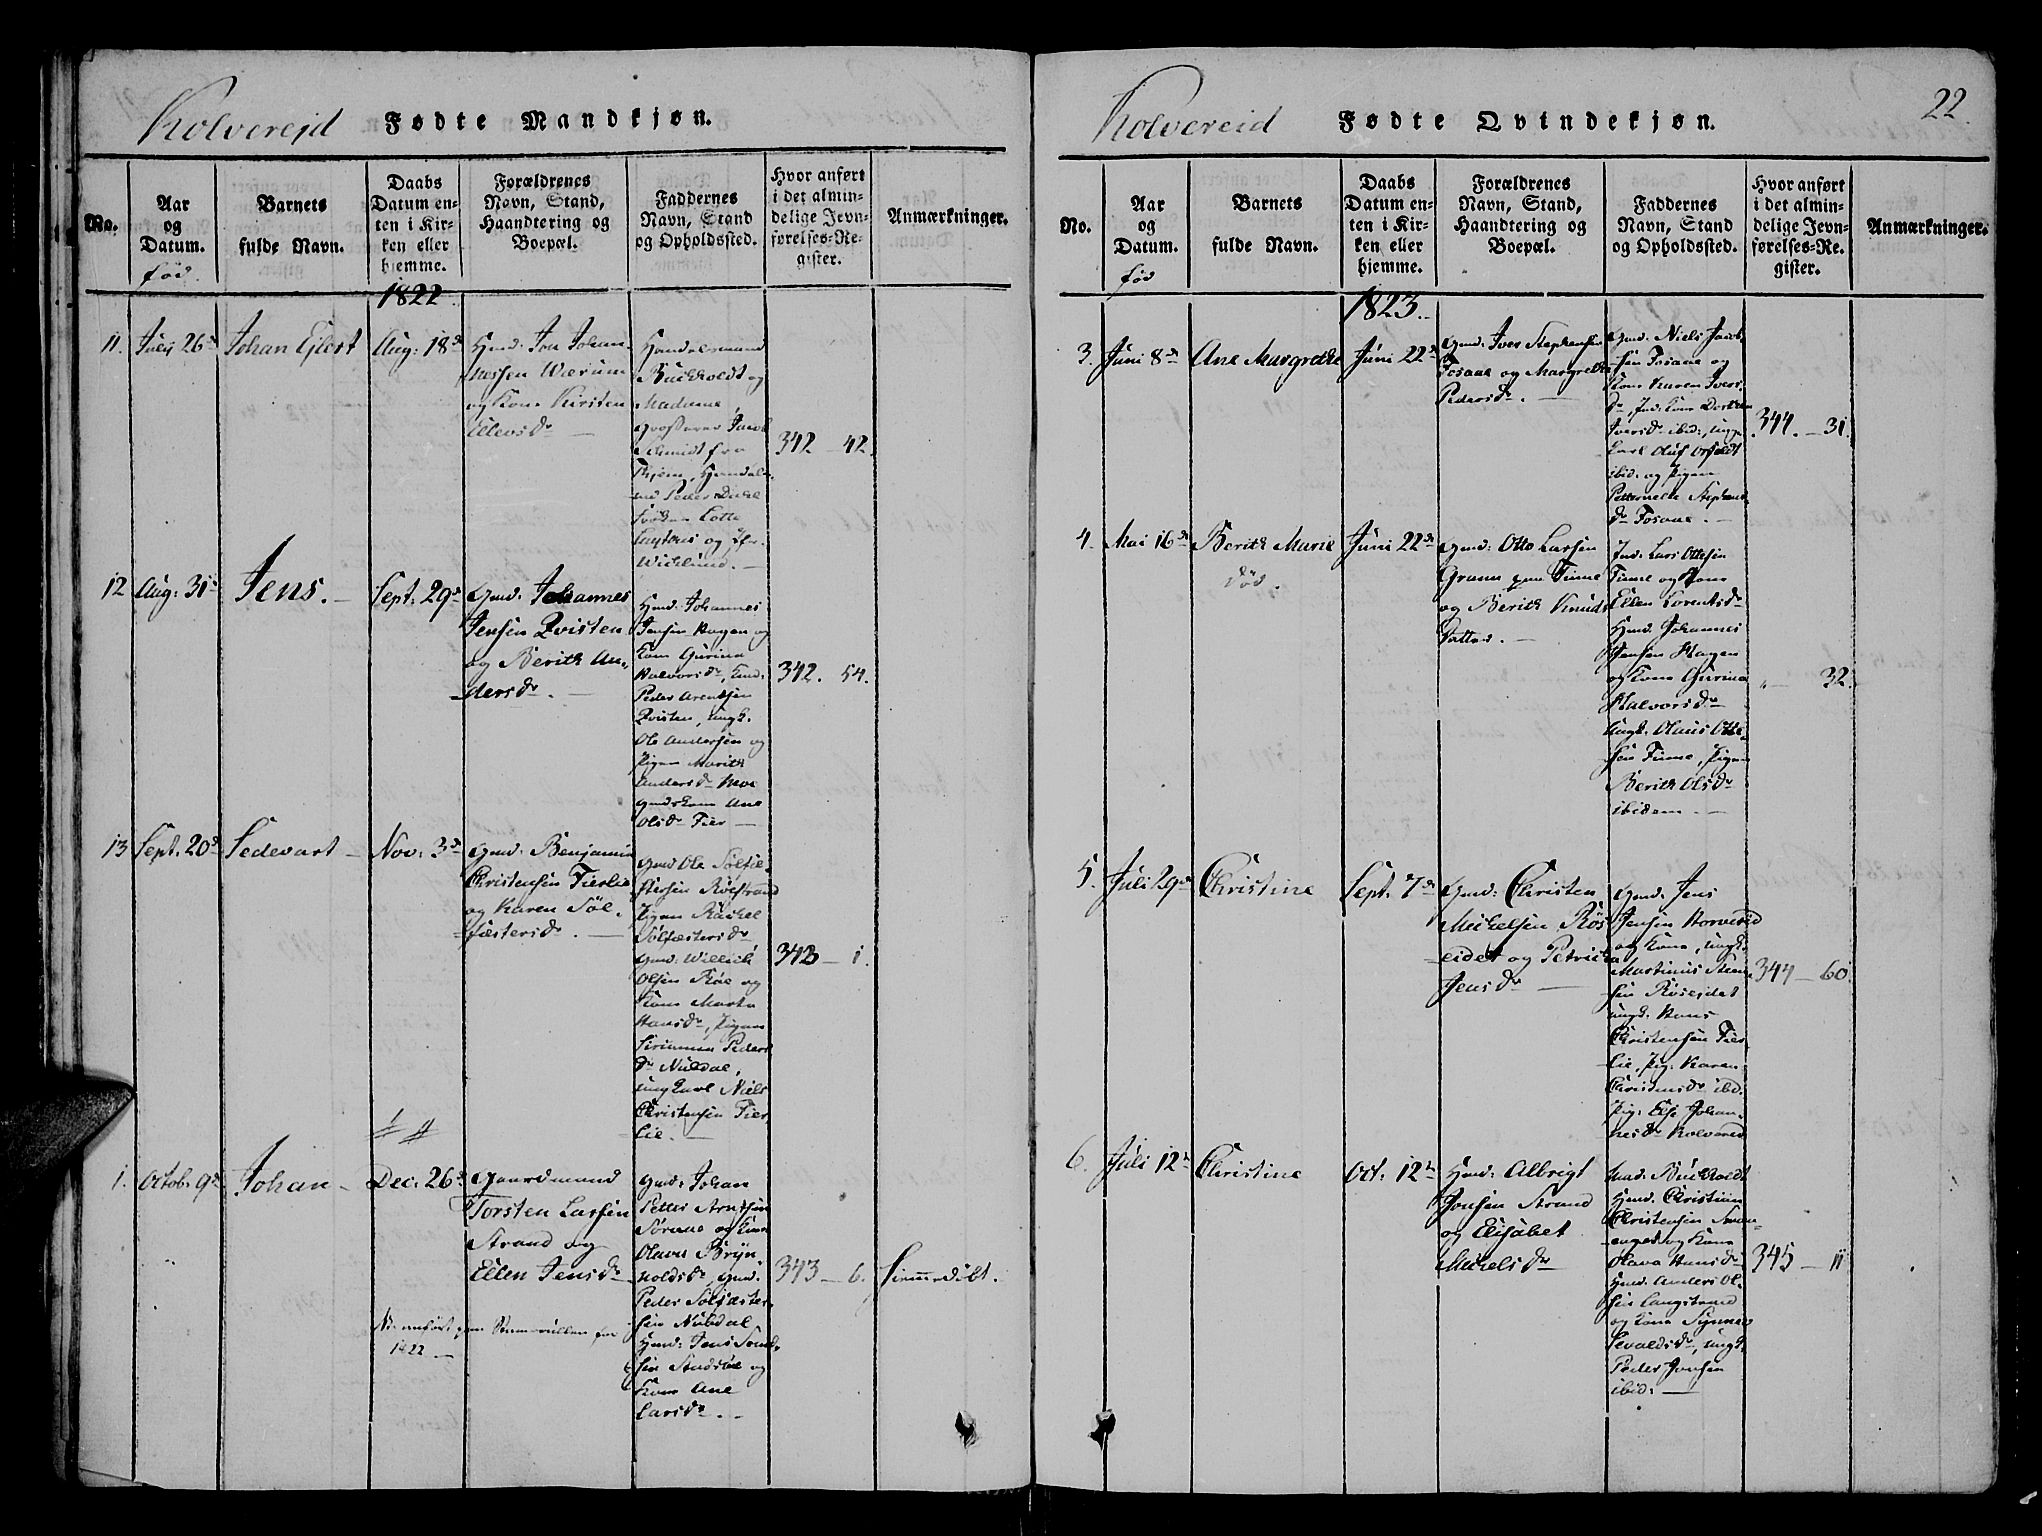 Kolverejd Fødte Mandkjøn.
No.
Aar
og
Datum.
fød.
Barnets
fulde Navn.
Daabs
Datum en-
ten i Kir-
ken eller
hjemme.
Forældrenes
Navn, Stand,
Haandtering og
Boepæl.
Faddernes
Navn, Stand
og Opholdssted.
Hvor anført
i det almin-
delige Jevn-
førelses-Re-
gister.
Anmærkninger.
1822
11. July 26de Johan Ejlert Aug: 18de
Hmd: Jon Johan-
nessen Wærum
og Kone Kirsten
Ellevsdr
Handelsmand
Buchholdt og
Madame
Grosserer Jacob
Schmidt fra
Thjem, Handels-
md Peder Dahl
Lotte
og
Wicklund.
342 - 42.
12 Aug: 31te Jens. Sept: 29de
Gmd: Johannes
Jensen Qvisten
og Berith An-
dersdr.
Hmd: Johannes
Jensen Hagen og
Kone Gurina
Halvorsdr,
Peder Arentsen
Qvisten, ungk.
Ole Andersen og
Pigen Marith
Andersdr Moe
Gmds Kone Ane
Olsdr Fier
342. 54.
13 Sept: 20de Sedevart Nov: 3de
Gmd: Benjamin
Christensen Fierlie
og Karen Søl-
fæstersdr.
Gmd Ole Sølfæ-
stersen Røestrand
Pigen Rachel
Sølfæstersdr
Gmd: Willich
Olsen Røe og
Kone Marta
Hansdr, Pigen
Peders
dr Nubdal,
ungkarl Niels
Christensen Fier
lie.
343 - 1.
1. Octob: 9de Johan Dec: 26de
Gaardmand
Torsten Larsen
Strand og
Ellen Jensdr
Gmd: Johan
Petter Arntsen
Søraae og Kone
Olava Bryn
holdsdr, Gmd:
Peder Sølfæster-
sen Nubdal
Hmd: Jens
sen og
Kone Ane
Larsdr.
343 - 6. Hiemmedøbt.
No anført paa for
1822.
Kolvereid Fødte Qvindekjøn. 22.
No.
Aar
og
Datum.
fød
Barnets
fulde Navn.
Daabs
Datum en-
ten i Kir-
ken eller
hjemme.
Forældrenes
Navn, Stand,
Haandtering og
Boepæl.
Faddernes
Navn, Stand
og Opholdssted.
Hvor anført
i det almin-
delige Jevn-
førelses-Re-
gister.
Anmærkninger.
1823.
3. Juni 8de Ane Margrethe Juni 22de
Gmd: Iver Stephensen
Fosaae og Margrethe
Pedersdr.
Gmd: Niels Jacob-
sen Fosaae og
Kone Karen Ivers
dr, Ind: Kone Dorthea
Iversdr ibid:, ung-
karl Oluf
ibid: og Pigen
Petternelle Stephens
dr Fosaae.
344. - 31.
4. Mai 16de Berith Marie Juni 22de
død.
Gmd: Otto Larsen
Finne
og Berith Knuds
datter.
Ind: Lars Ottesen
Finne og Kone
Ellen Lorentsdr
Hmd: Johannes
Jensen Hagen
og Kone Gurina
Halvorsdr
Ungk: Olaus Otte-
sen Finne, Pigen
Berith Olsdr
ibidem.
„ - 32.
5. Juli 29de Christine Sept: 7de
Gmd: Christen
Michelsen Rös
eidet og Petricka
Jensdr
Gmd: Jens
Jensen Horvereid
og Kone, ungk:
Martinus
sen Röseidet
ungk: Hans
Christensen Fier
lie, Pig: Karen
Christensdr ibid.
Pig: Else Johan-
nesdr Kolvereid
344 - 60.
6. Juli 12te Christine Oct: 12te
Hmd: Albrigt
Jonsen Strand
og Elisabet
Michelsdr
Mad: Buchholdt
Hmd: Christian
Christensen Svan-
enget og Kone
Olava Hansdr
Hmd: Anders Ol-
sen Langstrand
og Kone Synnev
Sevaldsdr, ungk.
Peder Jonsen
ibid:
345 - 11